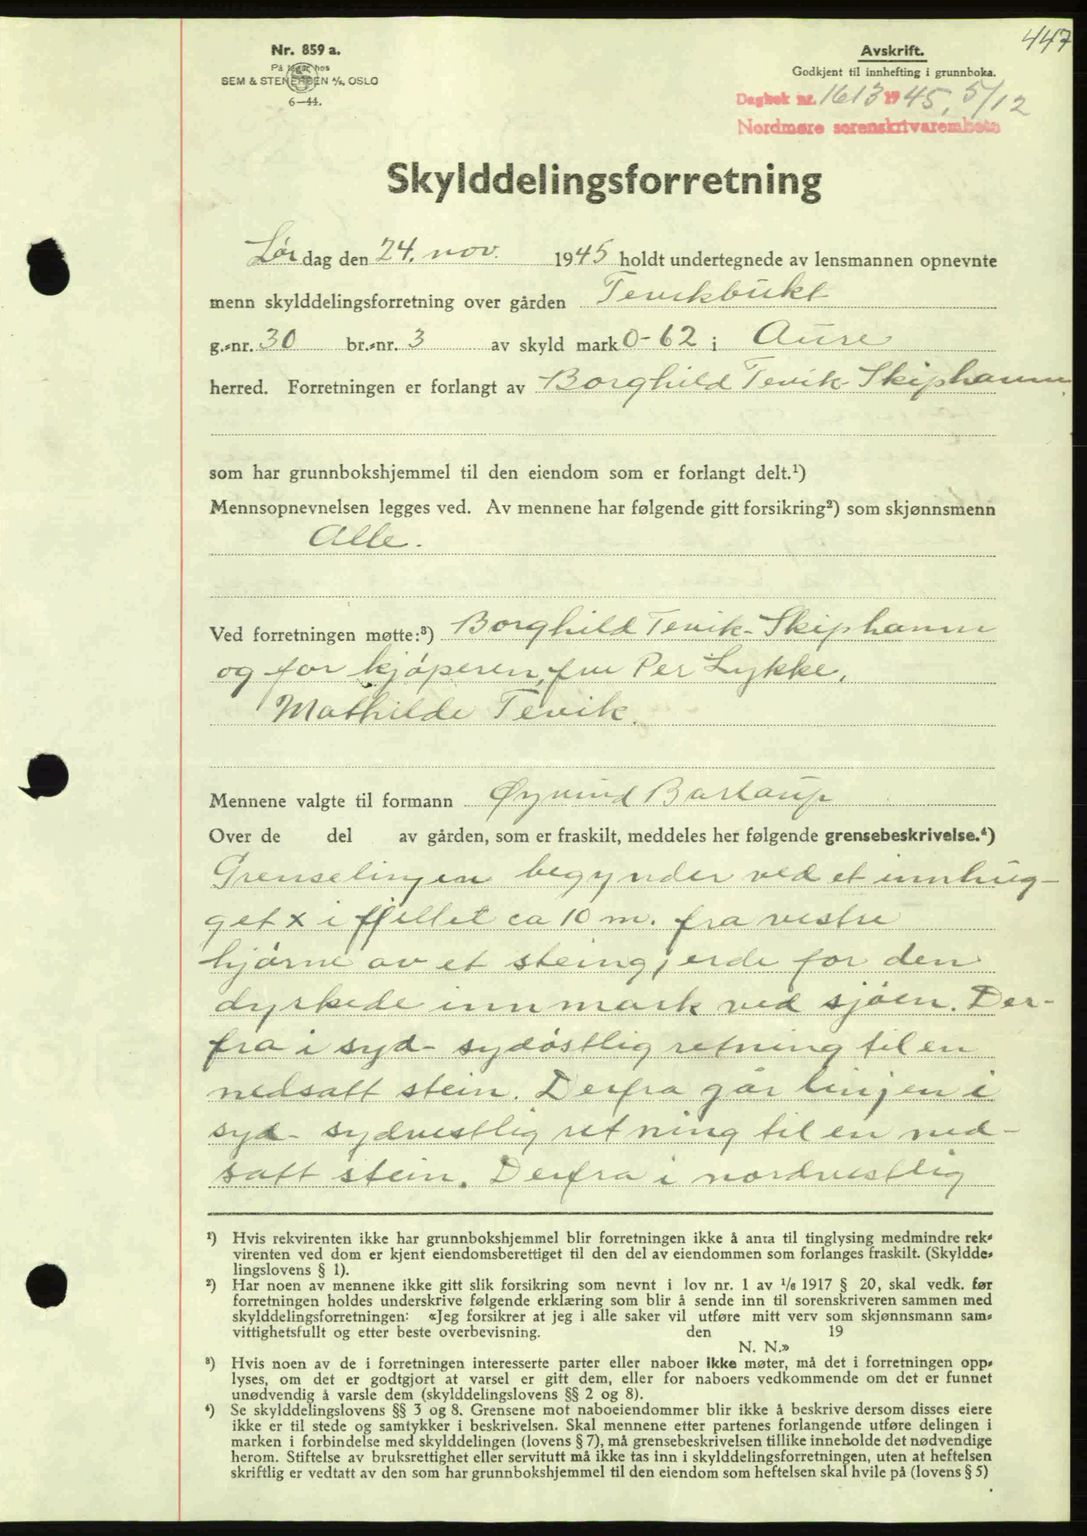 447
Nr. 859 a.
På lager hos
SEM & STENERSEN A/S, OSLO
6—44.
Avskrift.
Godkjent til innhefting i grunnboka.
Dagbok nr. 1613 1945, 5/12
Nordmøre sorenskrivarembete
Skylddelingsforretning
Lørdag den 24. nov. 1945 holdt undertegnede av lensmannen opnevnte
menn skylddelingsforretning over gården Tevikbukt
g.-nr. 30 br.-nr. 3 av skyld mark 0-62 i Aure
herred. Forretningen er forlangt av Borghild Tevik-Skiphamn
som har grunnbokshjemmel til den eiendom som er forlangt delt.¹)
Mennsopnevnelsen legges ved. Av mennene har følgende gitt forsikring²) som skjønnsmenn
Alle.
Ved forretningen møtte:³) Borghild Tevik-Skiphamn
og for kjøperen, fru Per Lykke,
Mathilde Tevik.
Mennene valgte til formann Øyvind
Over de del av gården, som er fraskilt, meddeles her følgende grensebeskrivelse.⁴)
Grenselinjen begynder ved et innhug-
get x i fjellet ca 10 m. fra vestre
hjørne av et steingjerde for den
dyrkede innmark ved sjøen. Der-
fra i syd-sydøstlig retning til en
nedsatt stein. Derfra går linjen i
syd-sydvestlig retning til en ned-
satt stein. Derfra i nordvestlig
¹) Hvis rekvirenten ikke har grunnbokshjemmel blir forretningen ikke å anta til tinglysing medmindre rek-
virenten ved dom er kjent eiendomsberettiget til den del av eiendommen som forlanges fraskilt. (Skyldde-
lingslovens § 1).
²) Har noen av mennene ikke gitt slik forsikring som nevnt i lov nr. 1 av 1/6 1917 § 20, skal vedk. før
forretningen holdes underskrive følgende erklæring som blir å sende inn til sorenskriveren sammen med
skylddelingsforretningen: «Jeg forsikrer at jeg i alle saker vil utføre mitt verv som skjønnsmann sam-
vittighetsfullt og etter beste overbevisning. den 19
N. N.»
³) Hvis noen av de i forretningen interesserte parter eller naboer ikke møter, må det i forretningen opp-
lyses, om det er godtgjort at varsel er gitt dem, eller for naboers vedkommende om det er funnet
unødvendig å varsle dem (skylddelingslovens §§ 2 og 8).
⁴) Se skylddelingslovens §§ 3 og 8. Grensene mot naboeiendommer blir ikke å beskrive dersom disses eiere
ikke er til stede og samtykker i beskrivelsen. Skal mennene etter partenes forlangende utføre delingen i
marken i forbindelse med skylddelingen (lovens § 7), må grensebeskrivelsen tillike inneholde det nødvendige
herom. Stiftelse av bruksrettighet eller servitutt må ikke tas inn i skylddelingsforretningen, uten at heftelsen
skriftlig er vedtatt av den som har grunnbokshjemmel til den eiendom som heftelsen skal hvile på (lovens § 5)